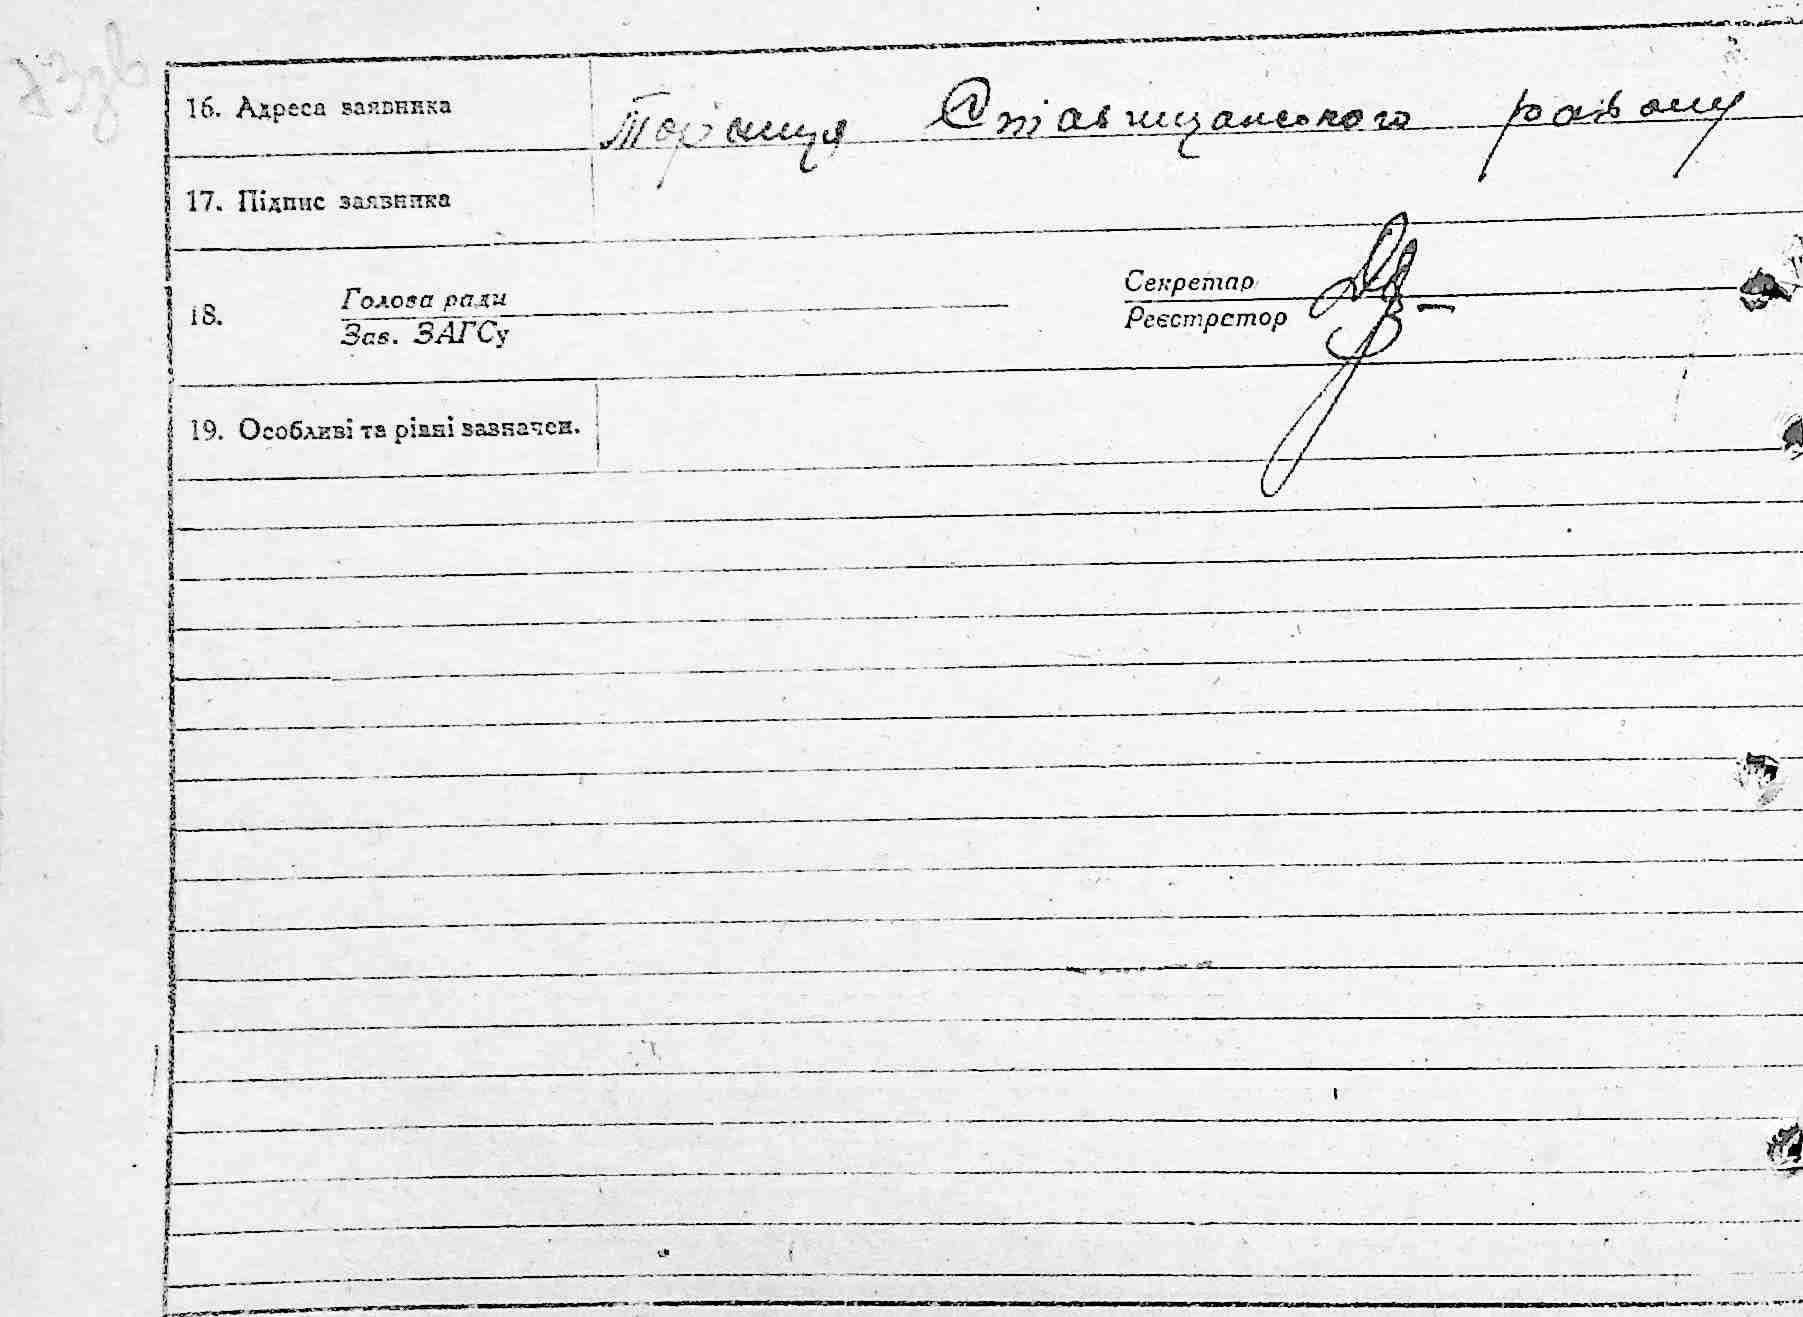 73зв
16. Адреса заявника Торчиця Ставищанського району
17. Підпис заявника
18. Голова ради Секретар
Зав. ЗАГСу Реєстратор
19. Особливі та різні зазначен.